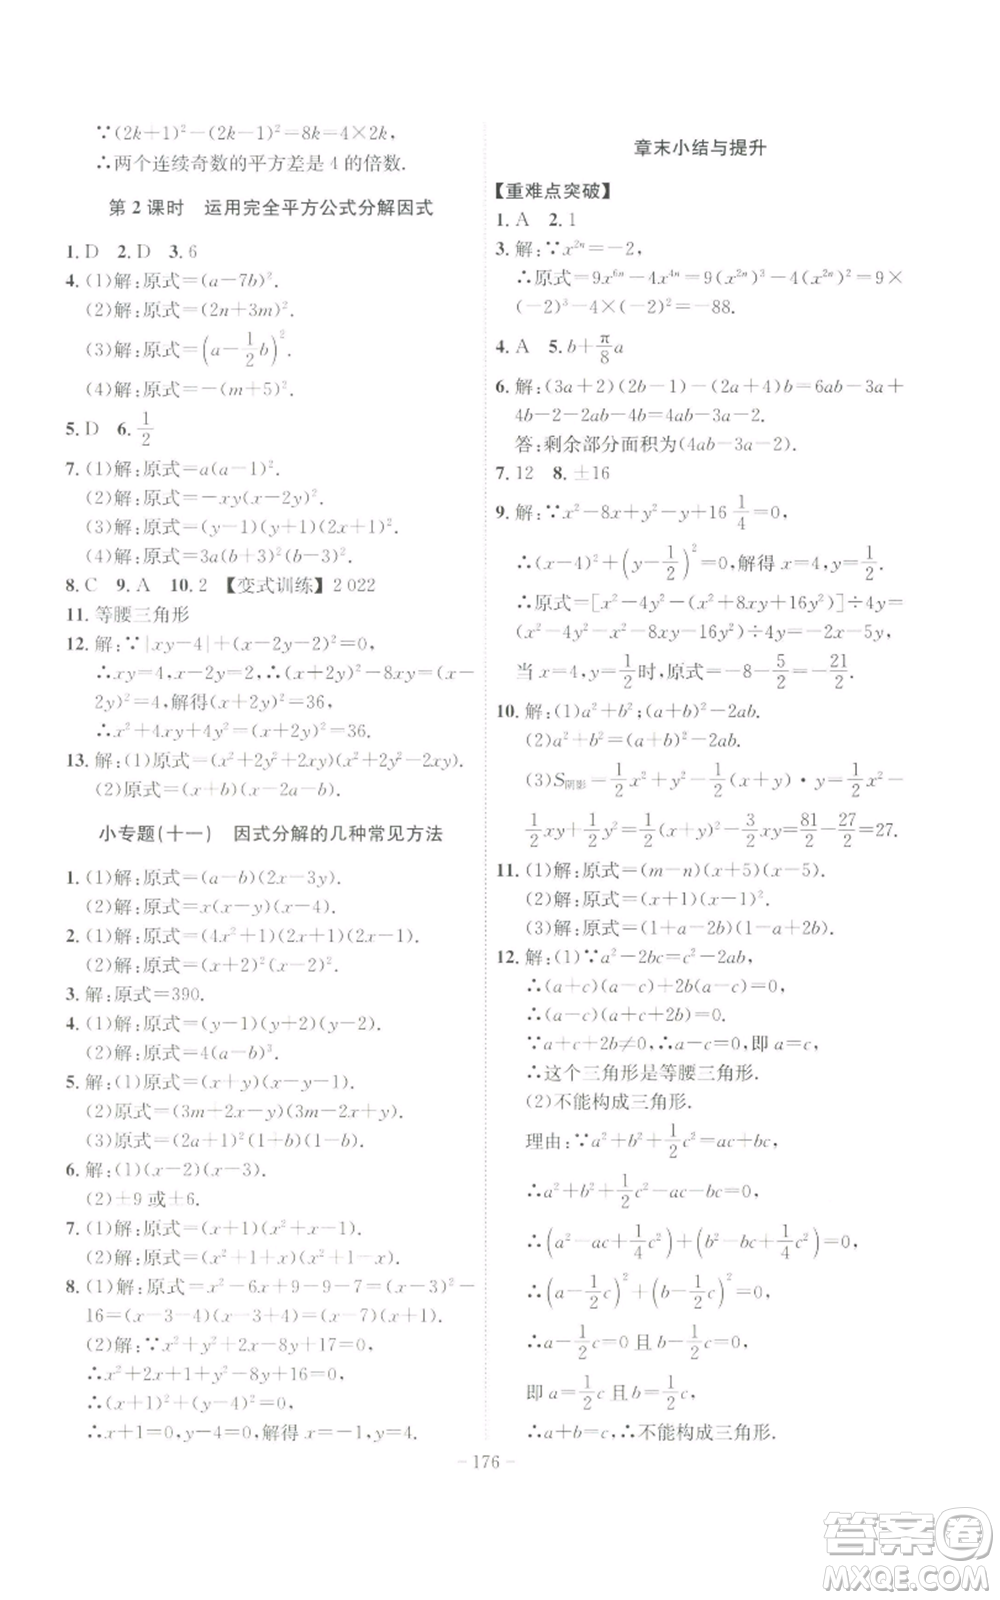 ∵(2k+1)²−(2k−1)²=8k=4×2k,
∴两个连续奇数的平方差是 4 的倍数.
第 2 课时　运用完全平方公式分解因式
1. D　2. D　3. 6
4. (1)解:原式=(a−7b)².
(2)解:原式=(2n+3m)².
(3)解:原式=(a−1/2 b)².
(4)解:原式=−(m+5)².
5. D　6. 1/2
7. (1)解:原式=a(a−1)².
(2)解:原式=−xy(x−2y)².
(3)解:原式=(y−1)(y+1)(2x−1)².
(4)解:原式=3a(b+3)²(b−3)².
8. C　9. A　10. 2　【变式训练】2 022
11. 等腰三角形
12. 解:∵|xy−4|+(x−2y−2)²=0,
∴xy=4,x−2y=2,∴(x+2y)²−8xy=(x−
2y)²,解得(x+2y)²=36,
∴x²+4xy+4y²=(x+2y)²=36.
13. 解:(1)原式=(x²+2y²+2xy)(x²+2y²−2xy).
(2)原式=(x+b)(x−2a−b).
小专题(十一)　因式分解的几种常见方法
1. (1)解:原式=(a−b)(2x−3y).
(2)解:原式=x(x−y)(x−4).
2. (1)解:原式=(4x²+1)(2x+1)(2x−1).
(2)解:原式=(x+2)²(x−2)².
3. 解:原式=390.
4. (1)解:原式=(y−1)(y+2)(y−2).
(2)解:原式=4(a−b)³.
5. 解:(1)原式=(x+y)(x−y−1).
(2)原式=(3m+2x−y)(3m−2x+y).
(3)原式=(2a+1)²(1+b)(1−b).
6. 解:(1)(x−2)(x−3).
(2)±9 或±6.
7. (1)解:原式=(x+1)(x²+x+1).
(2)解:原式=(x²+1+x)(x²+1−x).
8. (1)解:原式=x²−6x+9−9−7=(x−3)²−
16=(x−3−4)(x−3+4)=(x−7)(x+1).
(2)解:∵x²+y²+2x−8y+17=0,
∴x²+2x+1+y²−8y+16=0,
∴(x+1)²+(y−4)²=0,
∴x+1=0,y−4=0,解得 x=−1,y=4.
章末小结与提升
【重难点突破】
1. A　2. 1
3. 解:∵x²ⁿ=−2,
∴原式=9x⁶ⁿ−4x⁴ⁿ=9(x²ⁿ)³−4(x²ⁿ)²=9×
(−2)³−4×(−2)²=−88.
4. A　5. b+π/8 a
6. 解:(3a+2)(2b−1)−(2a+4)b=6ab−3a+
4b−2−2ab−4b=4ab−3a−2.
答:剩余部分面积为(4ab−3a−2).
7. 12　8. ±16
9. 解:∵x²−8x+y²−y+16 1/4=0,
∴(x−4)²+(y−1/2)²=0,解得 x=4,y=1/2.
∴原式=[x²−4y²−(x²+8xy+16y²)]÷4y=
(x²−4y²−x²−8xy−16y²)÷4y=−2x−5y,
当 x=4,y=1/2时,原式=−8−5/2=−21/2.
10. 解:(1)a²+b²;(a+b)²−2ab.
(2)a²+b²=(a+b)²−2ab.
(3)S阴影=1/2 x²+y²−1/2(x+y)·y=1/2 x²−
1/2 xy+1/2 y²=1/2(x+y)²−3/2 xy=81/2−27/2=27.
11. (1)解:原式=(m−n)(x+5)(x−5).
(2)解:原式=(x+1)(x−1)².
(3)解:原式=(1+a−2b)(1−a+2b).
12. 解:(1)∵a²−2bc=c²−2ab,
∴(a+c)(a−c)+2b(a−c)=0,
∴(a−c)(a+c+2b)=0.
∵a+c+2b≠0,∴a−c=0,即 a=c,
∴这个三角形是等腰三角形.
(2)不能构成三角形.
理由:∵a²+b²+1/2 c²=ac+bc,
∴a²+b²+1/2 c²−ac−bc=0,
∴(a²−ac+1/4 c²)+(b²−bc+1/4 c²)=0,
∴(a−1/2 c)²+(b−1/2 c)²=0,
∴a−1/2 c=0 且 b−1/2 c=0,
即 a=1/2 c 且 b=1/2 c,
∴a+b=c,∴不能构成三角形.
− 176 −
答案卷
MXQE.COM